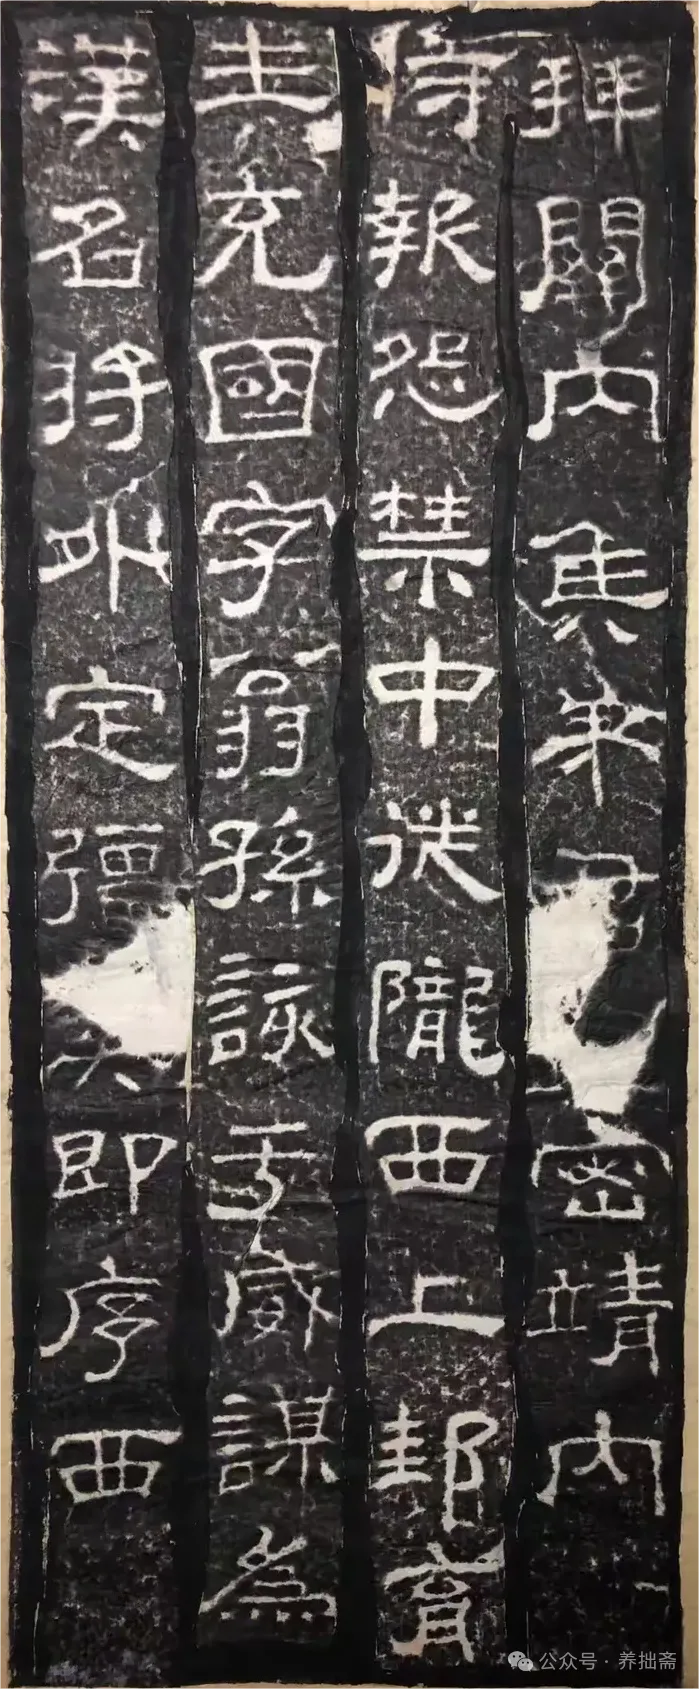 拜關內侯弟君密靖內
侍報怨禁中徙隴西上邽育
生充國字翁孫該于威謀為
漢名將外定彊即序西
公众号·养拙斋